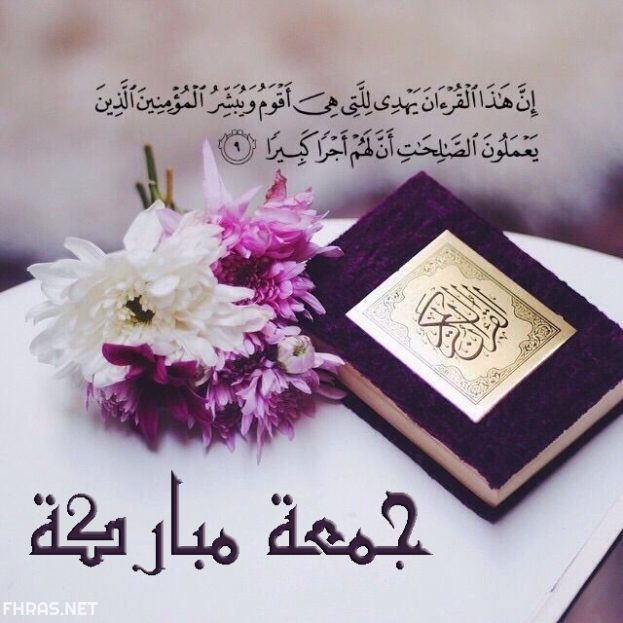 إِنَّ هَٰذَا ٱلْقُرْءَانَ يَهْدِى لِلَّتِى هِىَ أَقْوَمُ وَيُبَشِّرُ ٱلْمُؤْمِنِينَ ٱلَّذِينَ
يَعْمَلُونَ ٱلصَّٰلِحَٰتِ أَنَّ لَهُمْ أَجْرًا كَبِيرًا ٩
القرآن الكريم
جمعة مباركة
FHRAS.NET